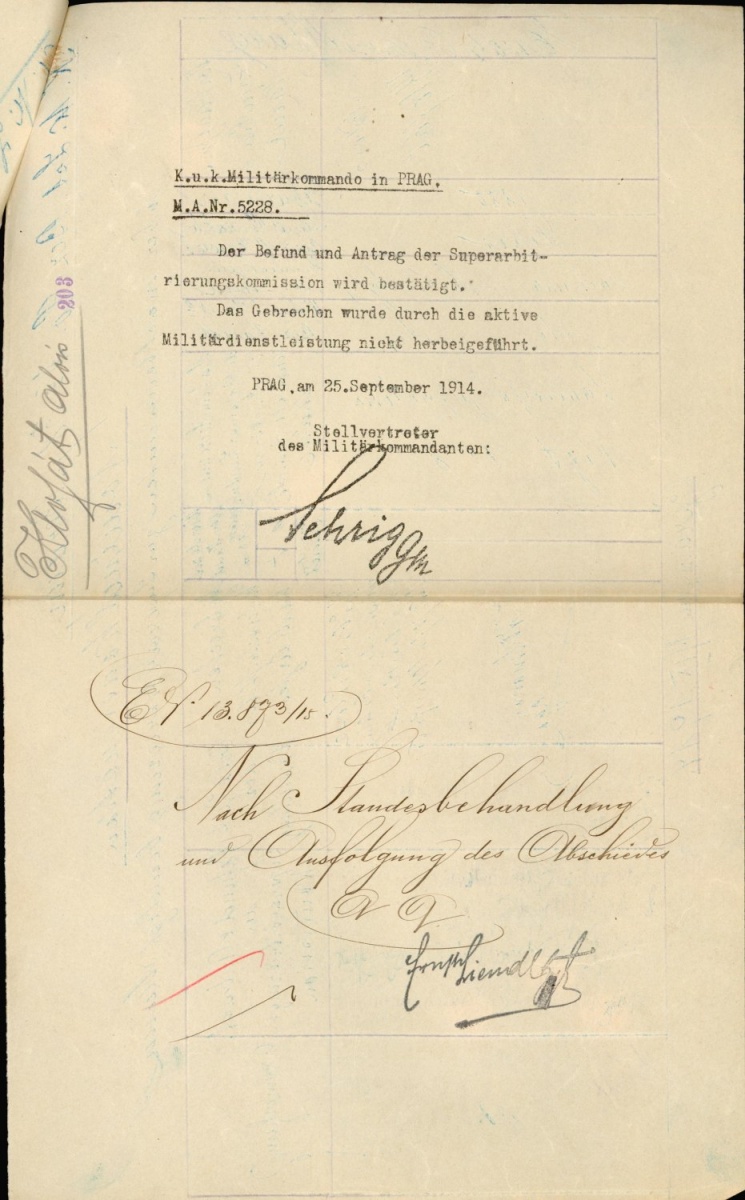 K.u.k.Militärkommando in PRAG.
M.A.Nr.5228.
Der Befund und Antrag der Superarbit-
rierungskommission wird bestätigt.
Das Gebrechen wurde durch die aktive
Militärdienstleistung nicht herbeigeführt.
PRAG, am 25.September 1914.
Stellvertreter
des Militärkommandanten:
203
Alois
13.873/15.
Nach Standesbehandlung
und Ausfolgung des Abschiedes